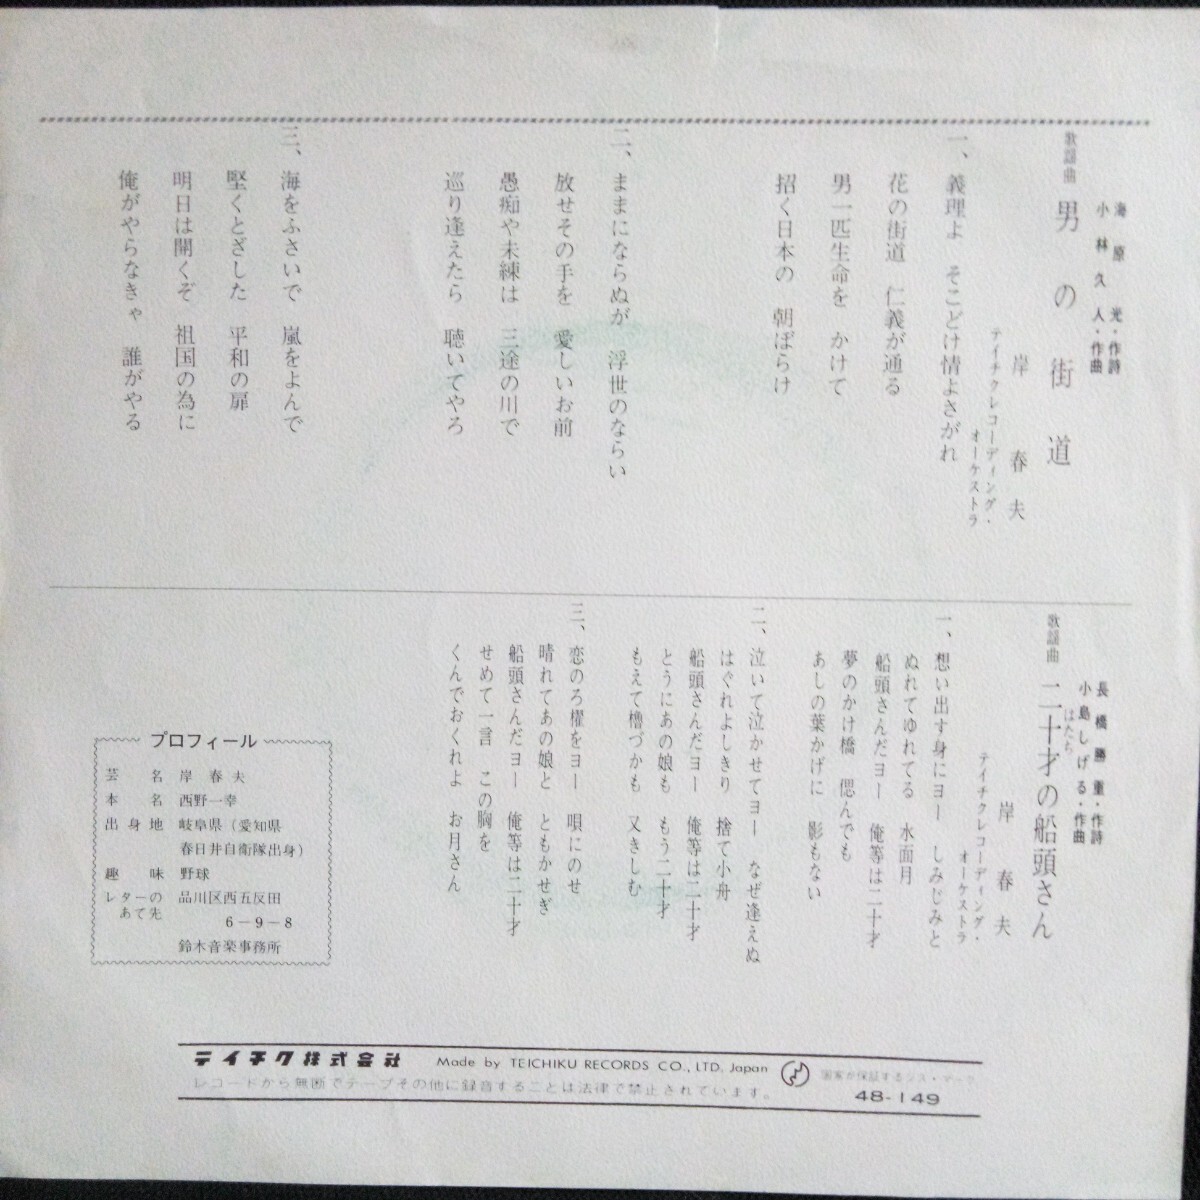 歌謡曲
男の街道
海原 光・作詩
小林久人・作曲
岸 春夫
テイチクレコーディング・
オーケストラ
一、義理よ そこどけ情よさがれ
花の街道 仁義が通る
男一匹生命を かけて
招く日本の 朝ぼらけ
二、ままにならぬが 浮世のならい
放せその手を 愛しいお前
愚痴や未練は 三途の川で
巡り逢えたら 聴いてやろ
三、海をふさいで 嵐をよんで
堅くとざした 平和の扉
明日は開くぞ 祖国の為に
俺がやらなきゃ 誰がやる
歌謡曲
二十才の船頭さん
はたち
長橋勝重・作詩
小島しげる・作曲
岸 春夫
テイチクレコーディング・
オーケストラ
一、想い出す身にヨー しみじみと
ぬれてゆれてる 水面月
船頭さんだヨー 俺等は二十才
夢のかけ橋 偲んでも
あしの葉かげに 影もない
二、泣いて泣かせてヨー なぜ逢えぬ
はぐれよしきり 捨て小舟
船頭さんだヨー 俺等は二十才
とうにあの娘も もう二十才
もえて櫓づかも 又きしむ
三、恋のろ櫂をヨー 唄にのせ
晴れてあの娘と ともかせぎ
船頭さんだヨー 俺等は二十才
せめて一言 この胸を
くんでおくれよ お月さん
プロフィール
芸名 岸 春夫
本名 西野一幸
出身地 岐阜県(愛知県
春日井自衛隊出身)
趣味 野球
レターの 品川区西五反田
あて先 6-9-8
鈴木音楽事務所
テイチク株式会社 Made by TEICHIKU RECORDS CO., LTD. Japan
国家が保証するジス・マーク
レコードから無断でテープその他に録音することは法律で禁止されています。
48-149